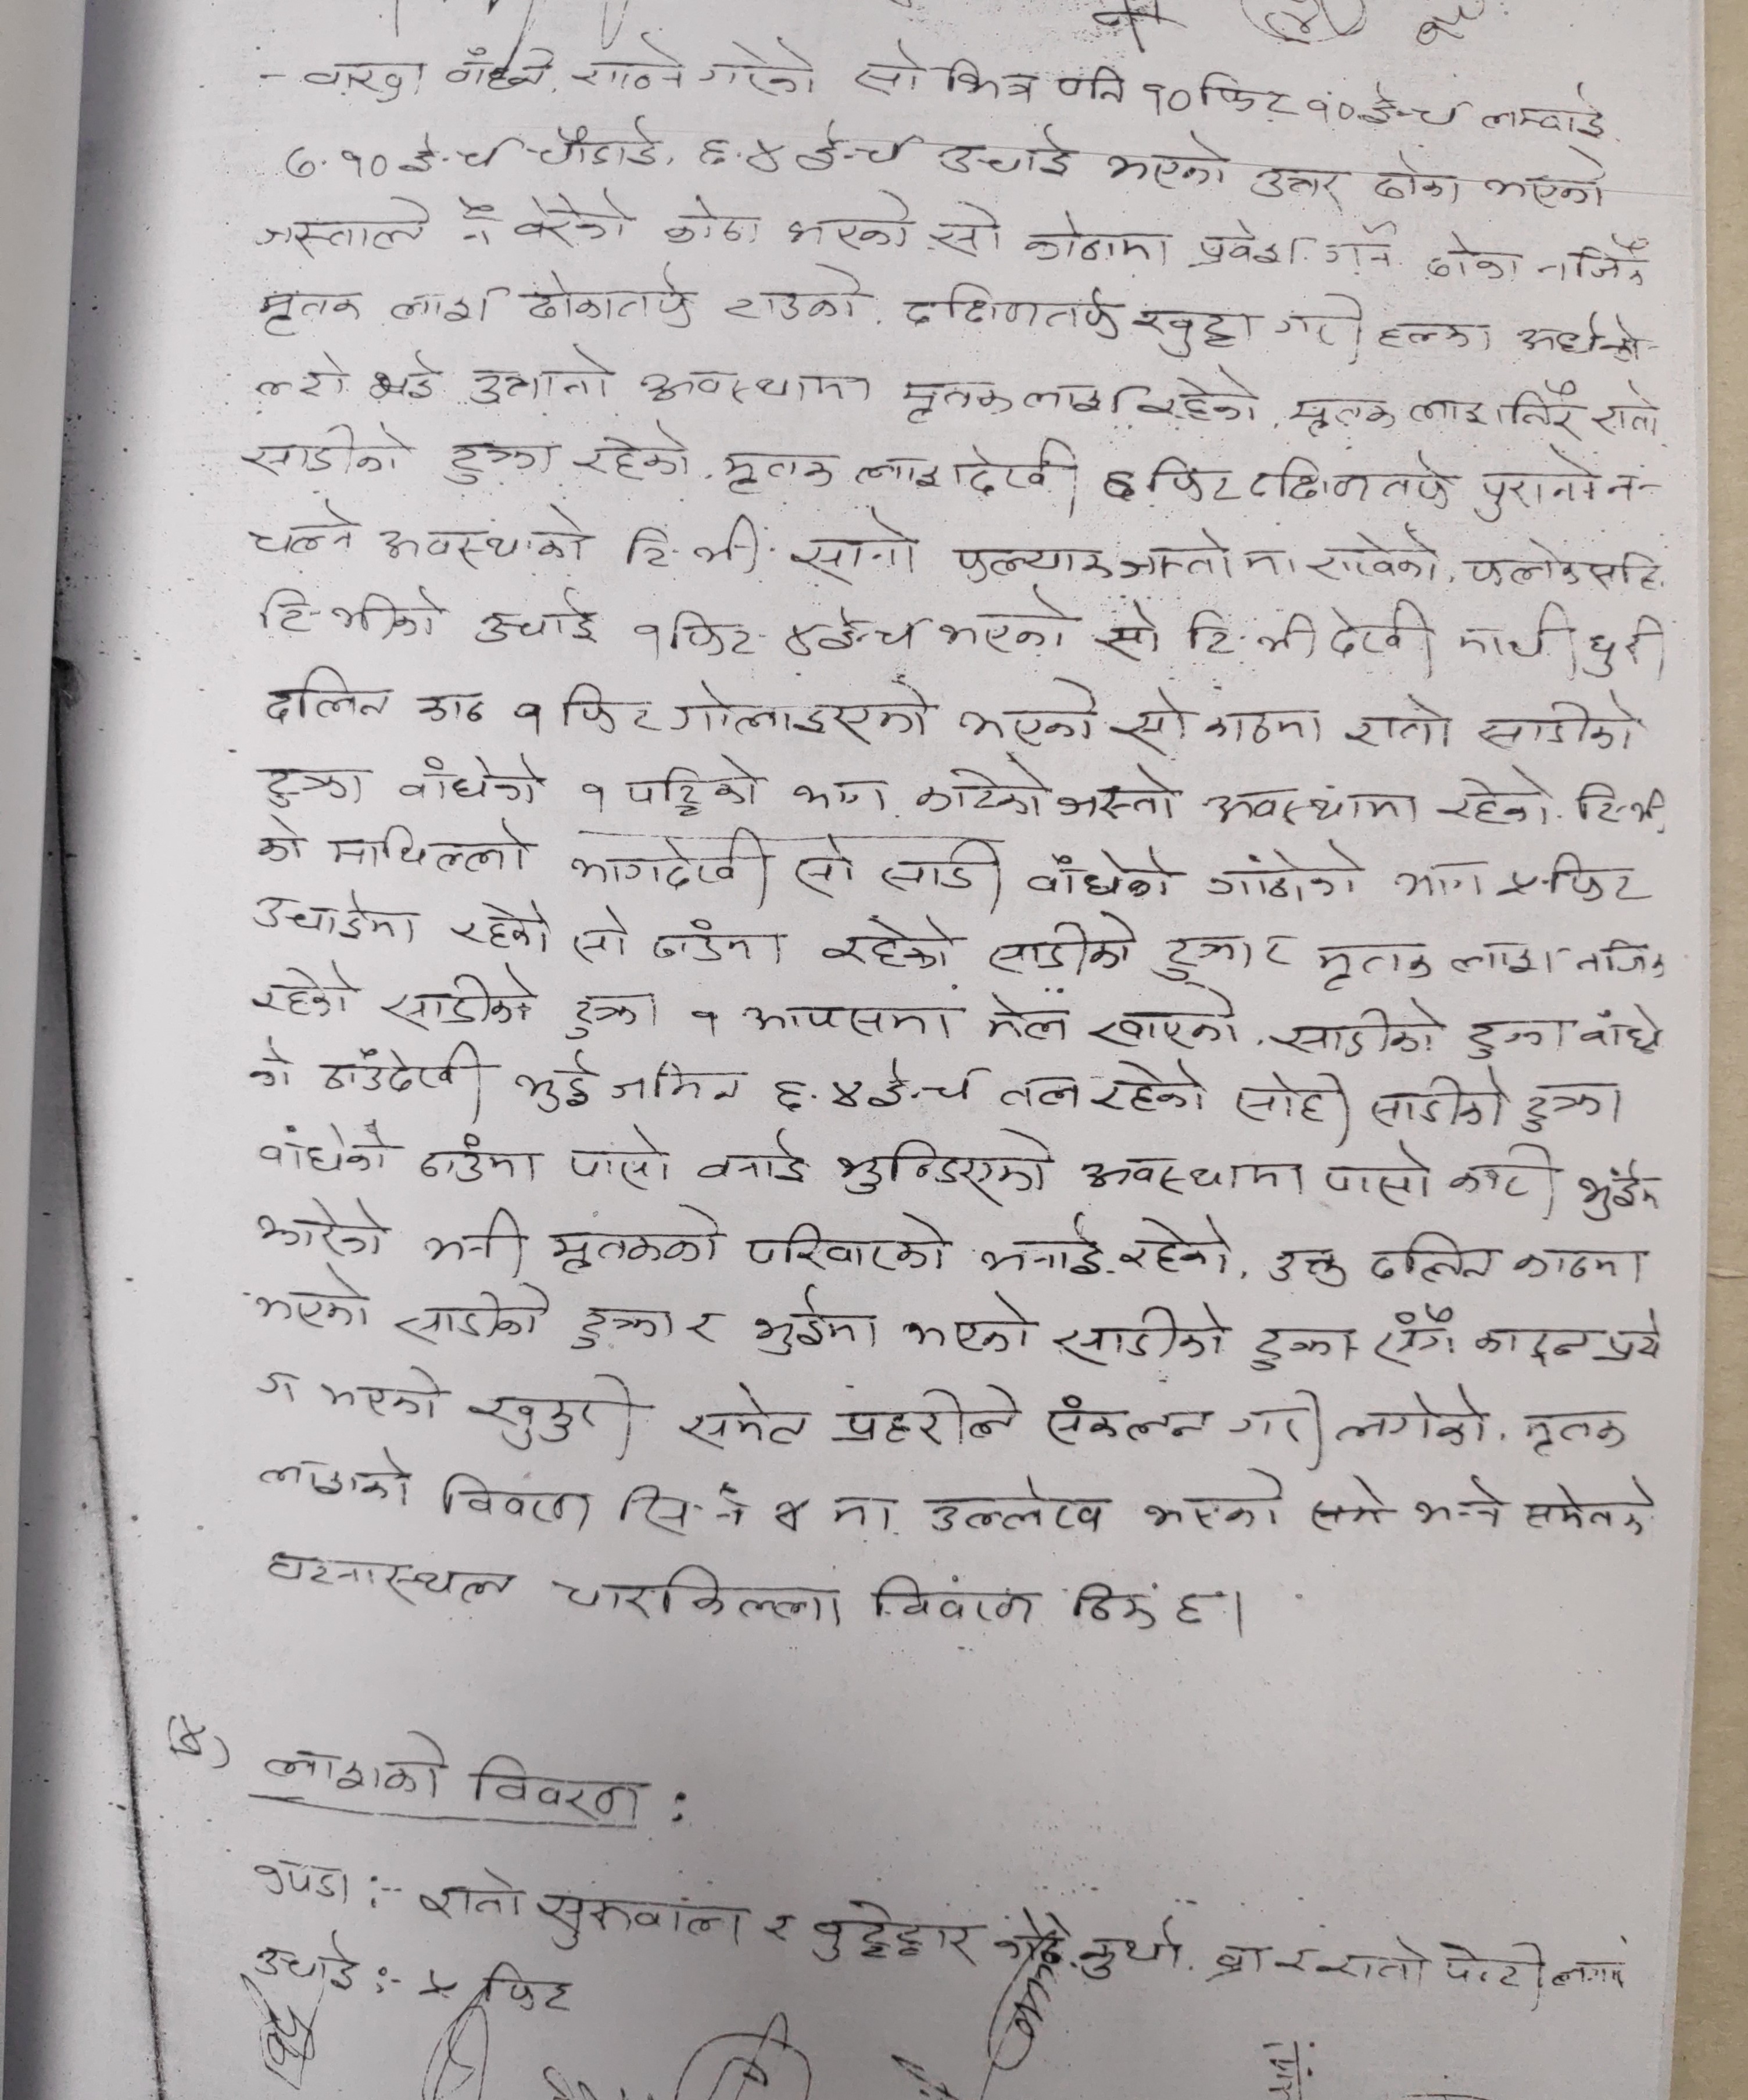 - वाख्रा बाँध्ने, गाठने गरेको सो भित्र पनि १० फिट १० ईन्च लम्वाई
७.१० ईन्च चौडाई, ६.४ ईन्च उचाई भएको उत्तर ढोका भएको
जस्ताले नै बेरेको कोठा भएको सो कोठामा प्रवेश गर्ने ढोका नजिकै
मृतक लाश ढोकातर्फ टाउको, दक्षिणतर्फ खुट्टा गरी हल्का अर्धको-
ल्टो भई उत्तानो अवस्थामा मृतक लाश रहेको, मृतक लाशतिरै रातो
साडीको टुक्रा रहेको, मृतक लाशदेखी ६ फिट दक्षिणतर्फ पुरानो न-
चल्ने अवस्थाको टि.भी. सानो फल्याक जस्तोमा राखेको, फलेकसहि.
टि.भीको उचाई १ फिट ४ ईन्च भएको सो टि.भी देखी माथी धुरी
दलिन काठ १ फिट गोलाइएको भएको सो काठमा रातो साडीको
टुक्रा बाँधेको १ पट्टिको भाग काटेको जस्तो अवस्थामा रहेको. टि.भी.
को माथिल्लो भागदेखी सो साडी बाँधेको गाँठोको भाग ५ फिट
उचाईमा रहेको सो ठाउँमा रहेको साडीको टुक्रा र मृतक लाश नजिक
रहेको साडीको टुक्रा १ आपसमा मेल खाएको, साडीको टुक्रा बाँधे
को ठाउँदेखी भुई जमिन ६.४ ईन्च तल रहेको सोही साडीको टुक्रा
बाँधेको ठाउँमा पासो बनाई झुन्डिएको अवस्थामा पासो काटी भुँईमा
झारेको भनी मृतकको परिवारको भनाई रहेको, उक्त दलिन काठमा
भएको साडीको टुक्रा र भुईमा भएको साडीको टुक्रा सँगै काट्न प्रयो
ग भएको खुकुरी समेत प्रहरीले संकलन गरी लगेको. मृतक
लाशको विवरण सि.नं ४ मा उल्लेख भएको भन्ने समेतको
घटनास्थल चारकिल्ला विवरण ठिक छ।
४) लाशको विवरण :
कपडा :- रातो सुरुवाल र बुट्टेदार कुर्था. ब्रा र रातो पेन्टी लगा
उचाई :- ५ फिट